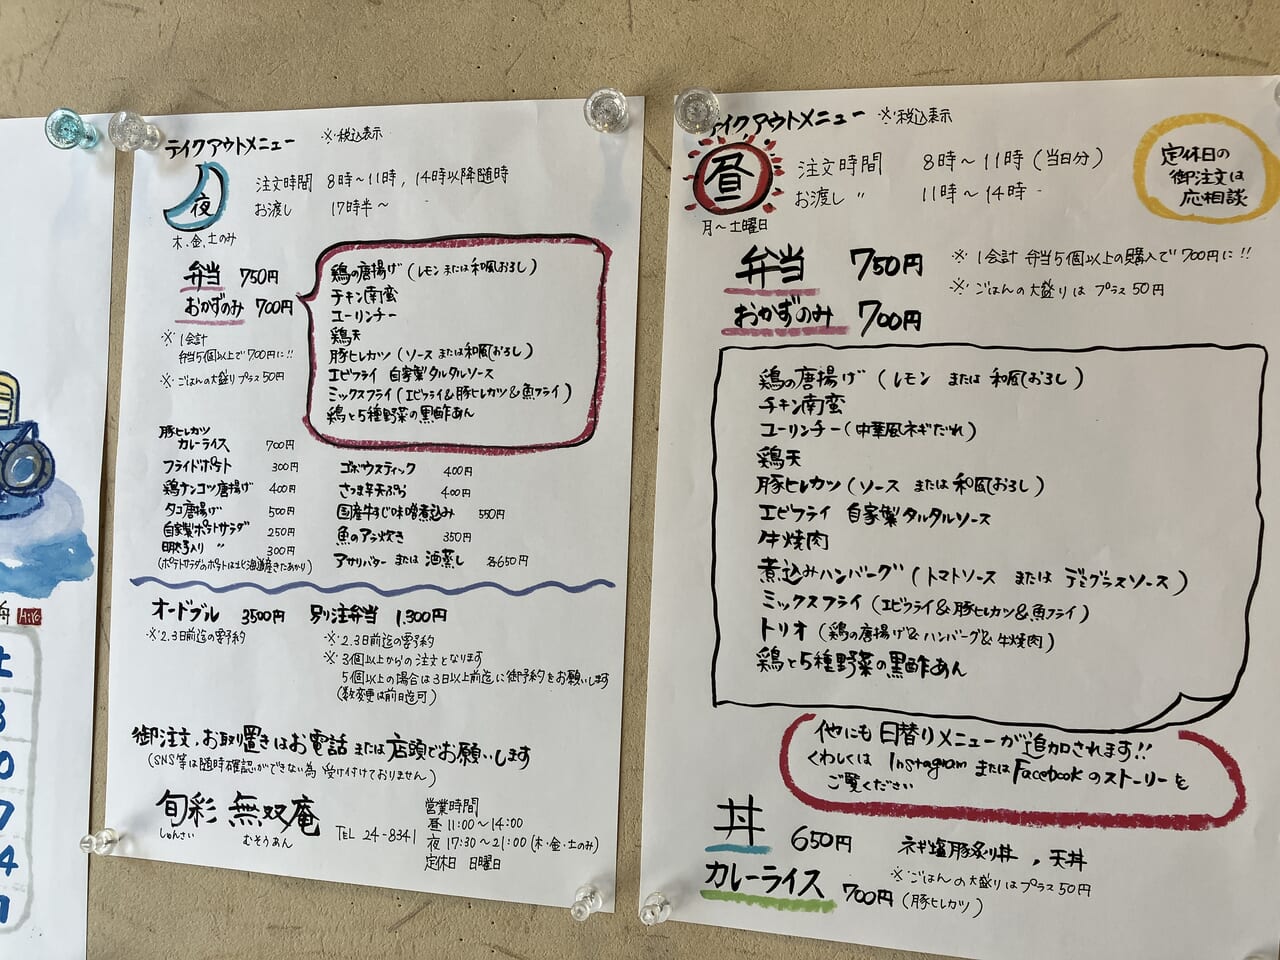 テイクアウトメニュー ※税込表示
夜
木、金、土のみ
注文時間 8時〜11時, 14時以降随時
お渡し 17時半〜
弁当 750円
おかずのみ 700円
※1会計
弁当5個以上で700円に!!
※ごはんの大盛りプラス50円
鶏の唐揚げ(レモンまたは和風おろし)
チキン南蛮
ユーリンチー
鶏天
豚ヒレカツ(ソースまたは和風おろし)
エビフライ 自家製タルタルソース
ミックスフライ(エビフライ&豚ヒレカツ&魚フライ)
鶏と5種野菜の黒酢あん
豚ヒレカツ
カレーライス 700円
フライドポテト 300円
鶏ナンコツ唐揚げ 400円
タコ唐揚げ 500円
自家製ポテトサラダ 250円
明太子入り 〃 300円
(ポテトサラダのポテトは北海道産きたあかり)
ゴボウスティック 400円
さつま芋天ぷら 400円
国産牛すじ味噌煮込み 550円
魚のアラ炊き 350円
アサリバター または 酒蒸し 各650円
オードブル 3500円
※2.3日前迄の要予約
別注弁当 1,300円
※2.3日前迄の要予約
※3個以上からの注文となります
5個以上の場合は3日以上前迄に御予約をお願いします
(数変更は前日迄可)
御注文、お取り置きはお電話または店頭でお願いします
(SNS等は随時確認ができない為 受け付けておりません)
旬彩 無双庵
しゅんさい むそうあん
TEL 24-8341
営業時間
昼 11:00〜14:00
夜 17:30〜21:00(木・金・土のみ)
定休日 日曜日
テイクアウトメニュー ※税込表示
昼
月〜土曜日
注文時間 8時〜11時(当日分)
お渡し 〃 11時〜14時
定休日の
御注文は
応相談
弁当 750円
おかずのみ 700円
※1会計 弁当5個以上の購入で700円に!!
※ごはんの大盛りはプラス50円
鶏の唐揚げ(レモンまたは和風おろし)
チキン南蛮
ユーリンチー(中華風ネギだれ)
鶏天
豚ヒレカツ(ソースまたは和風おろし)
エビフライ 自家製タルタルソース
牛焼肉
煮込みハンバーグ(トマトソースまたはデミグラスソース)
ミックスフライ(エビフライ&豚ヒレカツ&魚フライ)
トリオ(鶏の唐揚げ&ハンバーグ&牛焼肉)
鶏と5種野菜の黒酢あん
他にも日替りメニューが追加されます!!
くわしくは InstagramまたはFacebookのストーリーを
ご覧ください
丼 650円 ネギ塩豚炙り丼、天丼
※ごはんの大盛りはプラス50円
カレーライス 700円(豚ヒレカツ)
舟
土
3
0
7
4
1